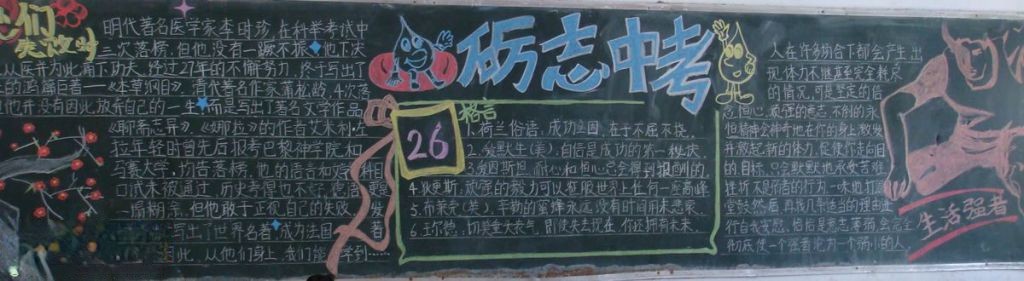 们
失败时
明代著名医学家李时珍,在科举考试中
三次落榜,但他没有一蹶不振,他下决
从医并为此痛下功夫,经过27年的不懈努力,终于写出了
的鸿篇巨者——《本草纲目》,清代著名作家蒲松龄,4次落
他并没有因此放弃自己的一生,而是写出了著名文学作品
《聊斋志异》,《娜拉》的作者艾米利·左
拉年轻时曾先后报考巴黎神学院和
马赛大学,均告落榜,他的
口试未被通过,历史考得也不好,德语
一塌糊涂,但他敢于正视自己的失败,发
写出了世界名著,成为法国
此,从他们身上,我们能学到……
砺志中考
26
格言
1.荷兰俗语:成功立国,在于不屈不挠。
2.爱默生(美):自信是成功的第一秘诀。
3.爱因斯坦:耐心和恒心总会得到报酬的
4.狄更斯:顽强的毅力可以征服世界上任何一座高峰
5.布莱克(英):辛勤的蜜蜂永远没有时间用来悲哀。
6.王尔德:切莫垂头丧气,即使失去现在,你还拥有未来。
人在许多场合下都会产生出
现体力不继甚至完全耗尽
的情况,可是坚定的信
念,恒心,顽强的意志,不倒的永
恒精神会神奇地在你的身上散发
并激起新的体力,促使你走向目
的目标,只会默默地承受苦难
挫折不是勇者的行为,一味地打
堂鼓然后再找几个适当的理由进
行自我安慰,恰恰是意志薄弱,会完全
彻底使一个强者沦为一个弱小的人。
生活强者